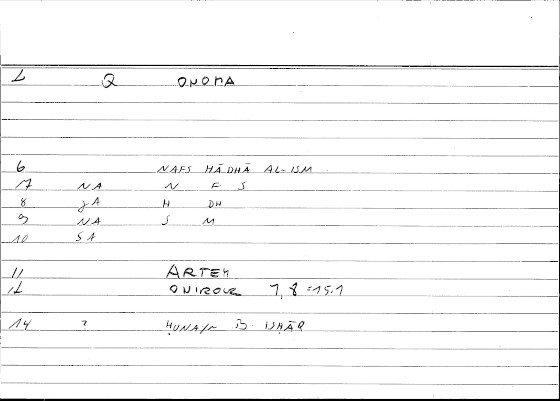 1 Q ONOMA
6 NAFS HĀDHĀ AL-ISM
17 NA N F S
8 JA H DH
9 NA S M
10 SA
11 ARTEM
12 ONIROCR 7,8 = 15.1
14 ? ḤUNAYN B. ISḤĀQ